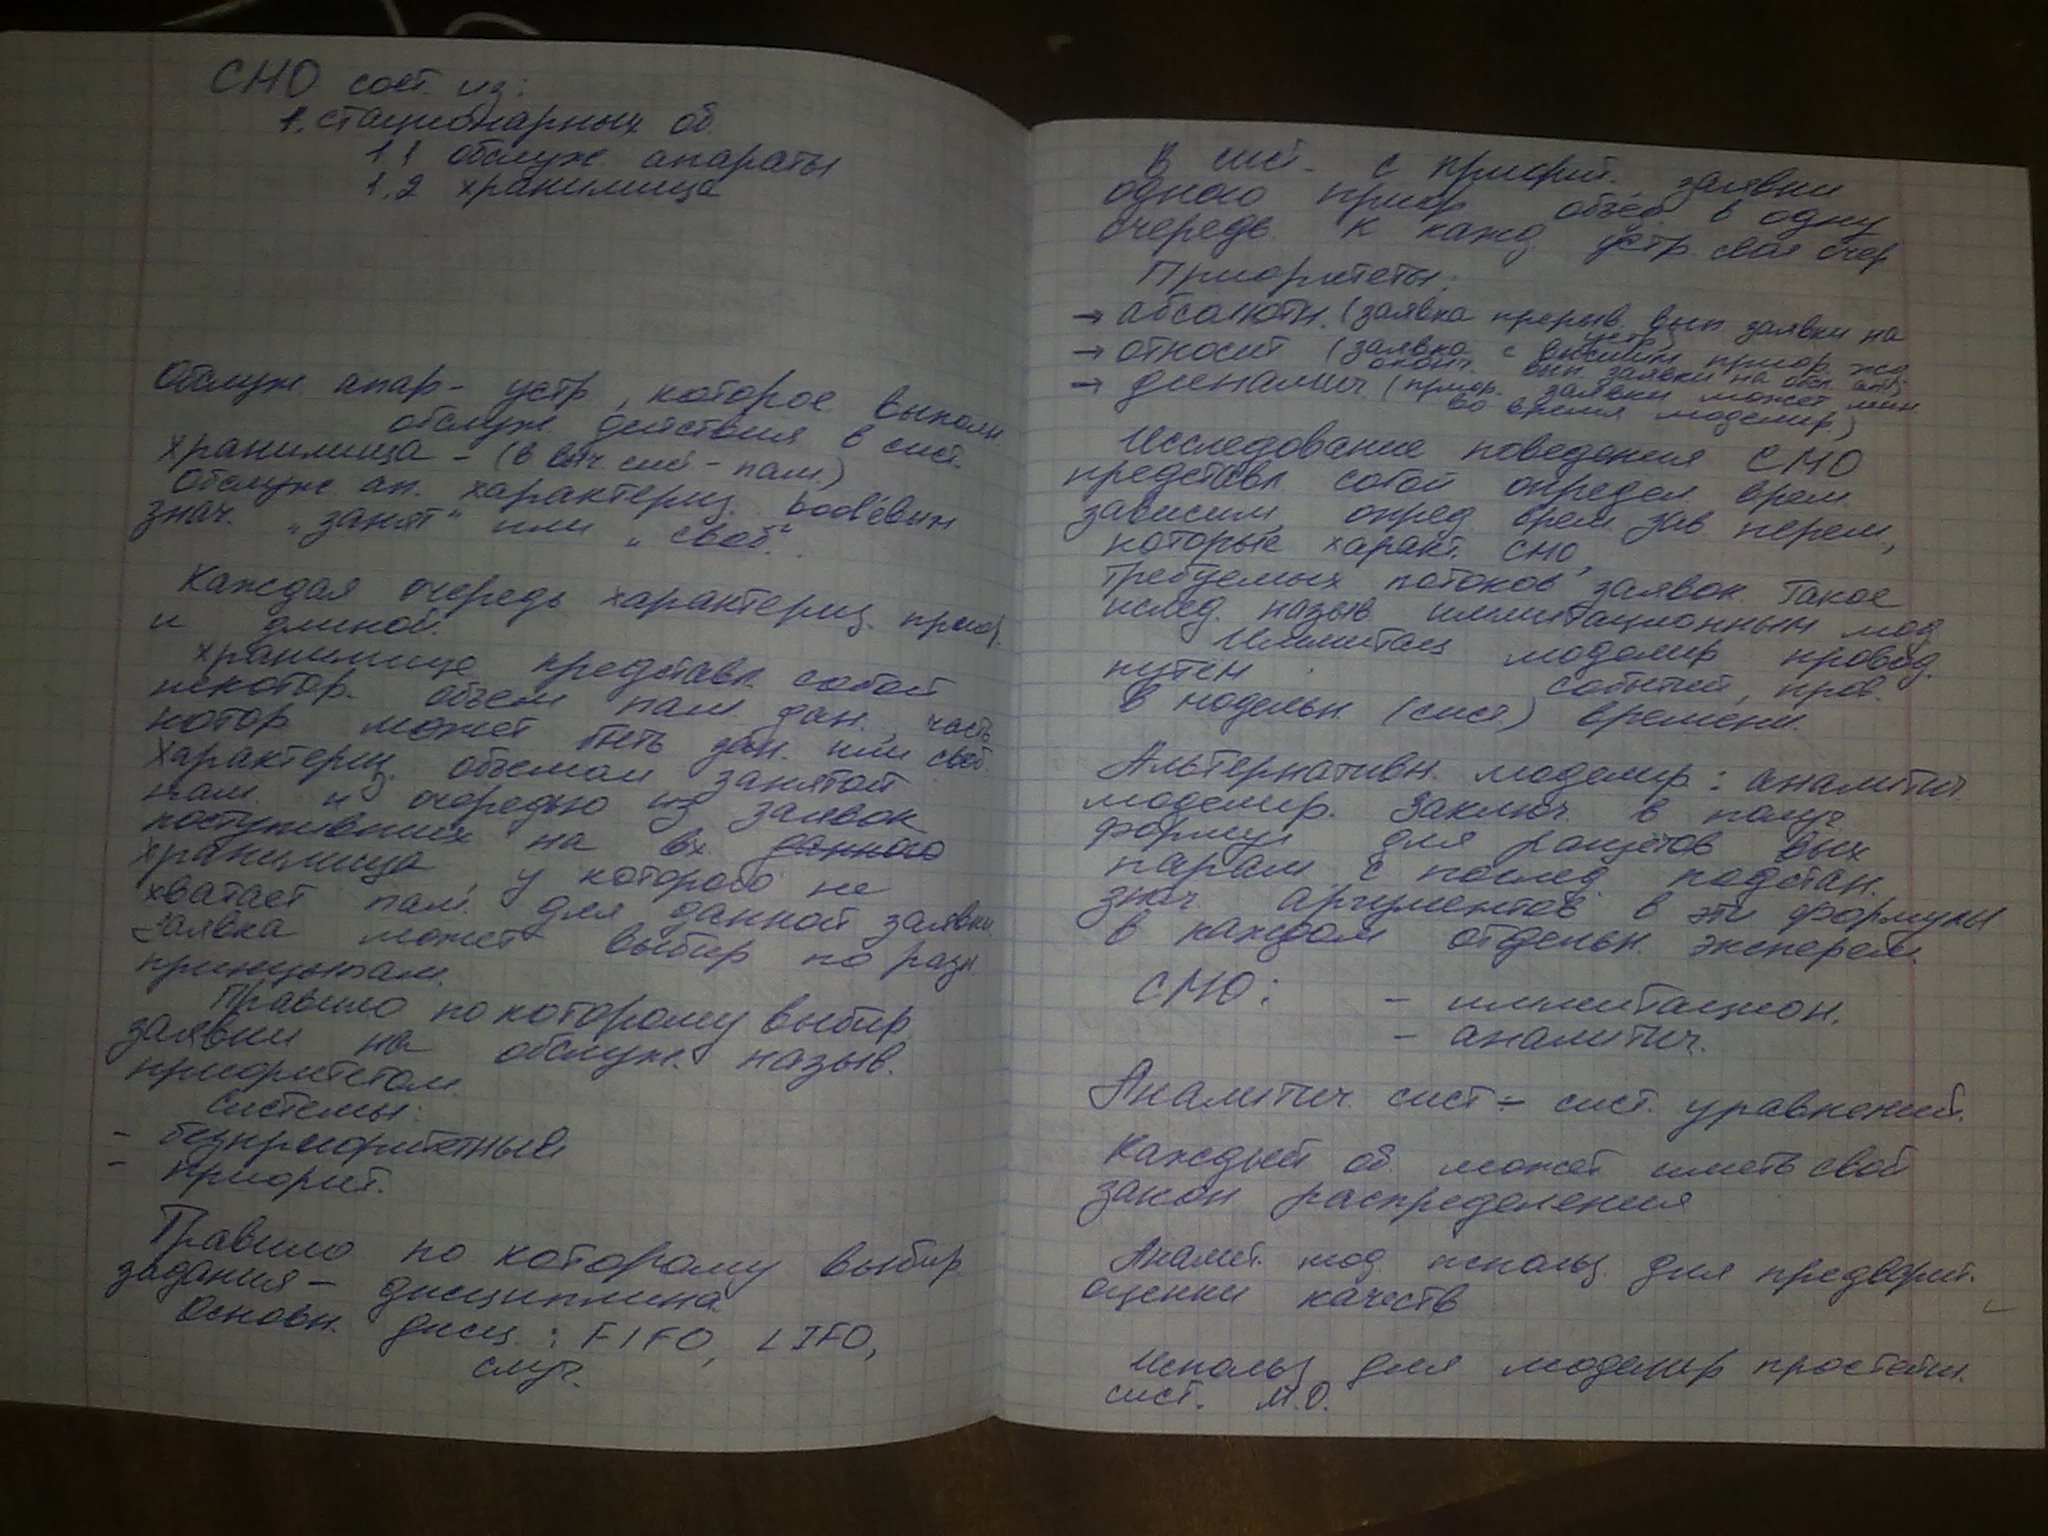 СМО сост. из:
1. стационарных об.
1.1 обслуж. апараты
1.2 хранилища
Обслуж апар - устр, которое выполн
обслуж действия в сист.
хранилища - (в выч. сист - пам.)
Обслуж. ап. характериз. bool'евым
знач. "занят" или "своб."
Каждая очередь характериз. приор.
и длиной.
хранилище представл. собой
некотор. объем пам. дан., часть
котор может быть зан. или своб.
Характериз. объемом занятой
пам. и очередью из заявок
поступивших на вх данного
хранилища, у которого не
хватает пам. для данной заявки.
Заявка может выбир по разн.
принципам.
Правило по которому выбир.
заявки на обслуж. назыв.
приоритетом.
Системы:
- безприоритетные
- приорит.
Правило по которому выбир.
задания - дисциплина
Основн. дисц.: FIFO, LIFO,
случ.
В сист. с приорит. заявки
одного приор объед в одну
очередь. К кажд устр. своя очер
Приоритеты:
→ абсолютн. (заявка прерыв. вып заявки на
устр.)
→ относит (заявка с высшим приор. жд
оконч. вып. заявки на обсл. апп)
→ динамич. (приор. заявки может мен
во время моделир.)
Исследование поведения СМО
представл. собой определ. врем.
зависим, опред врем зав. перем,
которые характ. СМО,
требуемых потоков заявок. Такое
ислед. назыв имитационным мод
Имитац моделир провод.
путем событий, пров.
в модельн. (сист.) времени.
Альтернативн. моделир: аналитич.
моделир. Заключ. в получ.
формул для ращетов вых
парам с послед. подстан.
знач. аргументов в эти формулы
в каждом отдельн. эксперем.
СМО: - имитацион.
- аналитич.
Аналитич. сист - сист. уравнений.
Каждый об. может иметь свой
закон распределения
Аналит. мод использ. для предворит.
оценки качеств
Использ для моделир простейш.
сист. М.О.